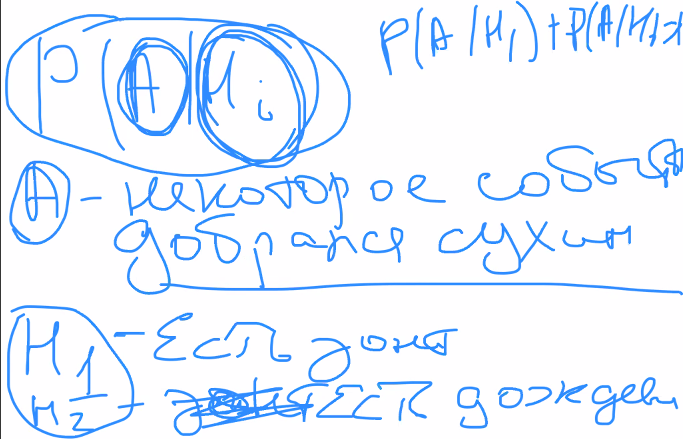 P(A|Hi)
P(A/H1)+P(A/H
A - некоторое событ
добрался сухим
H1 - Есть зонт
H2 - Есть дождеви